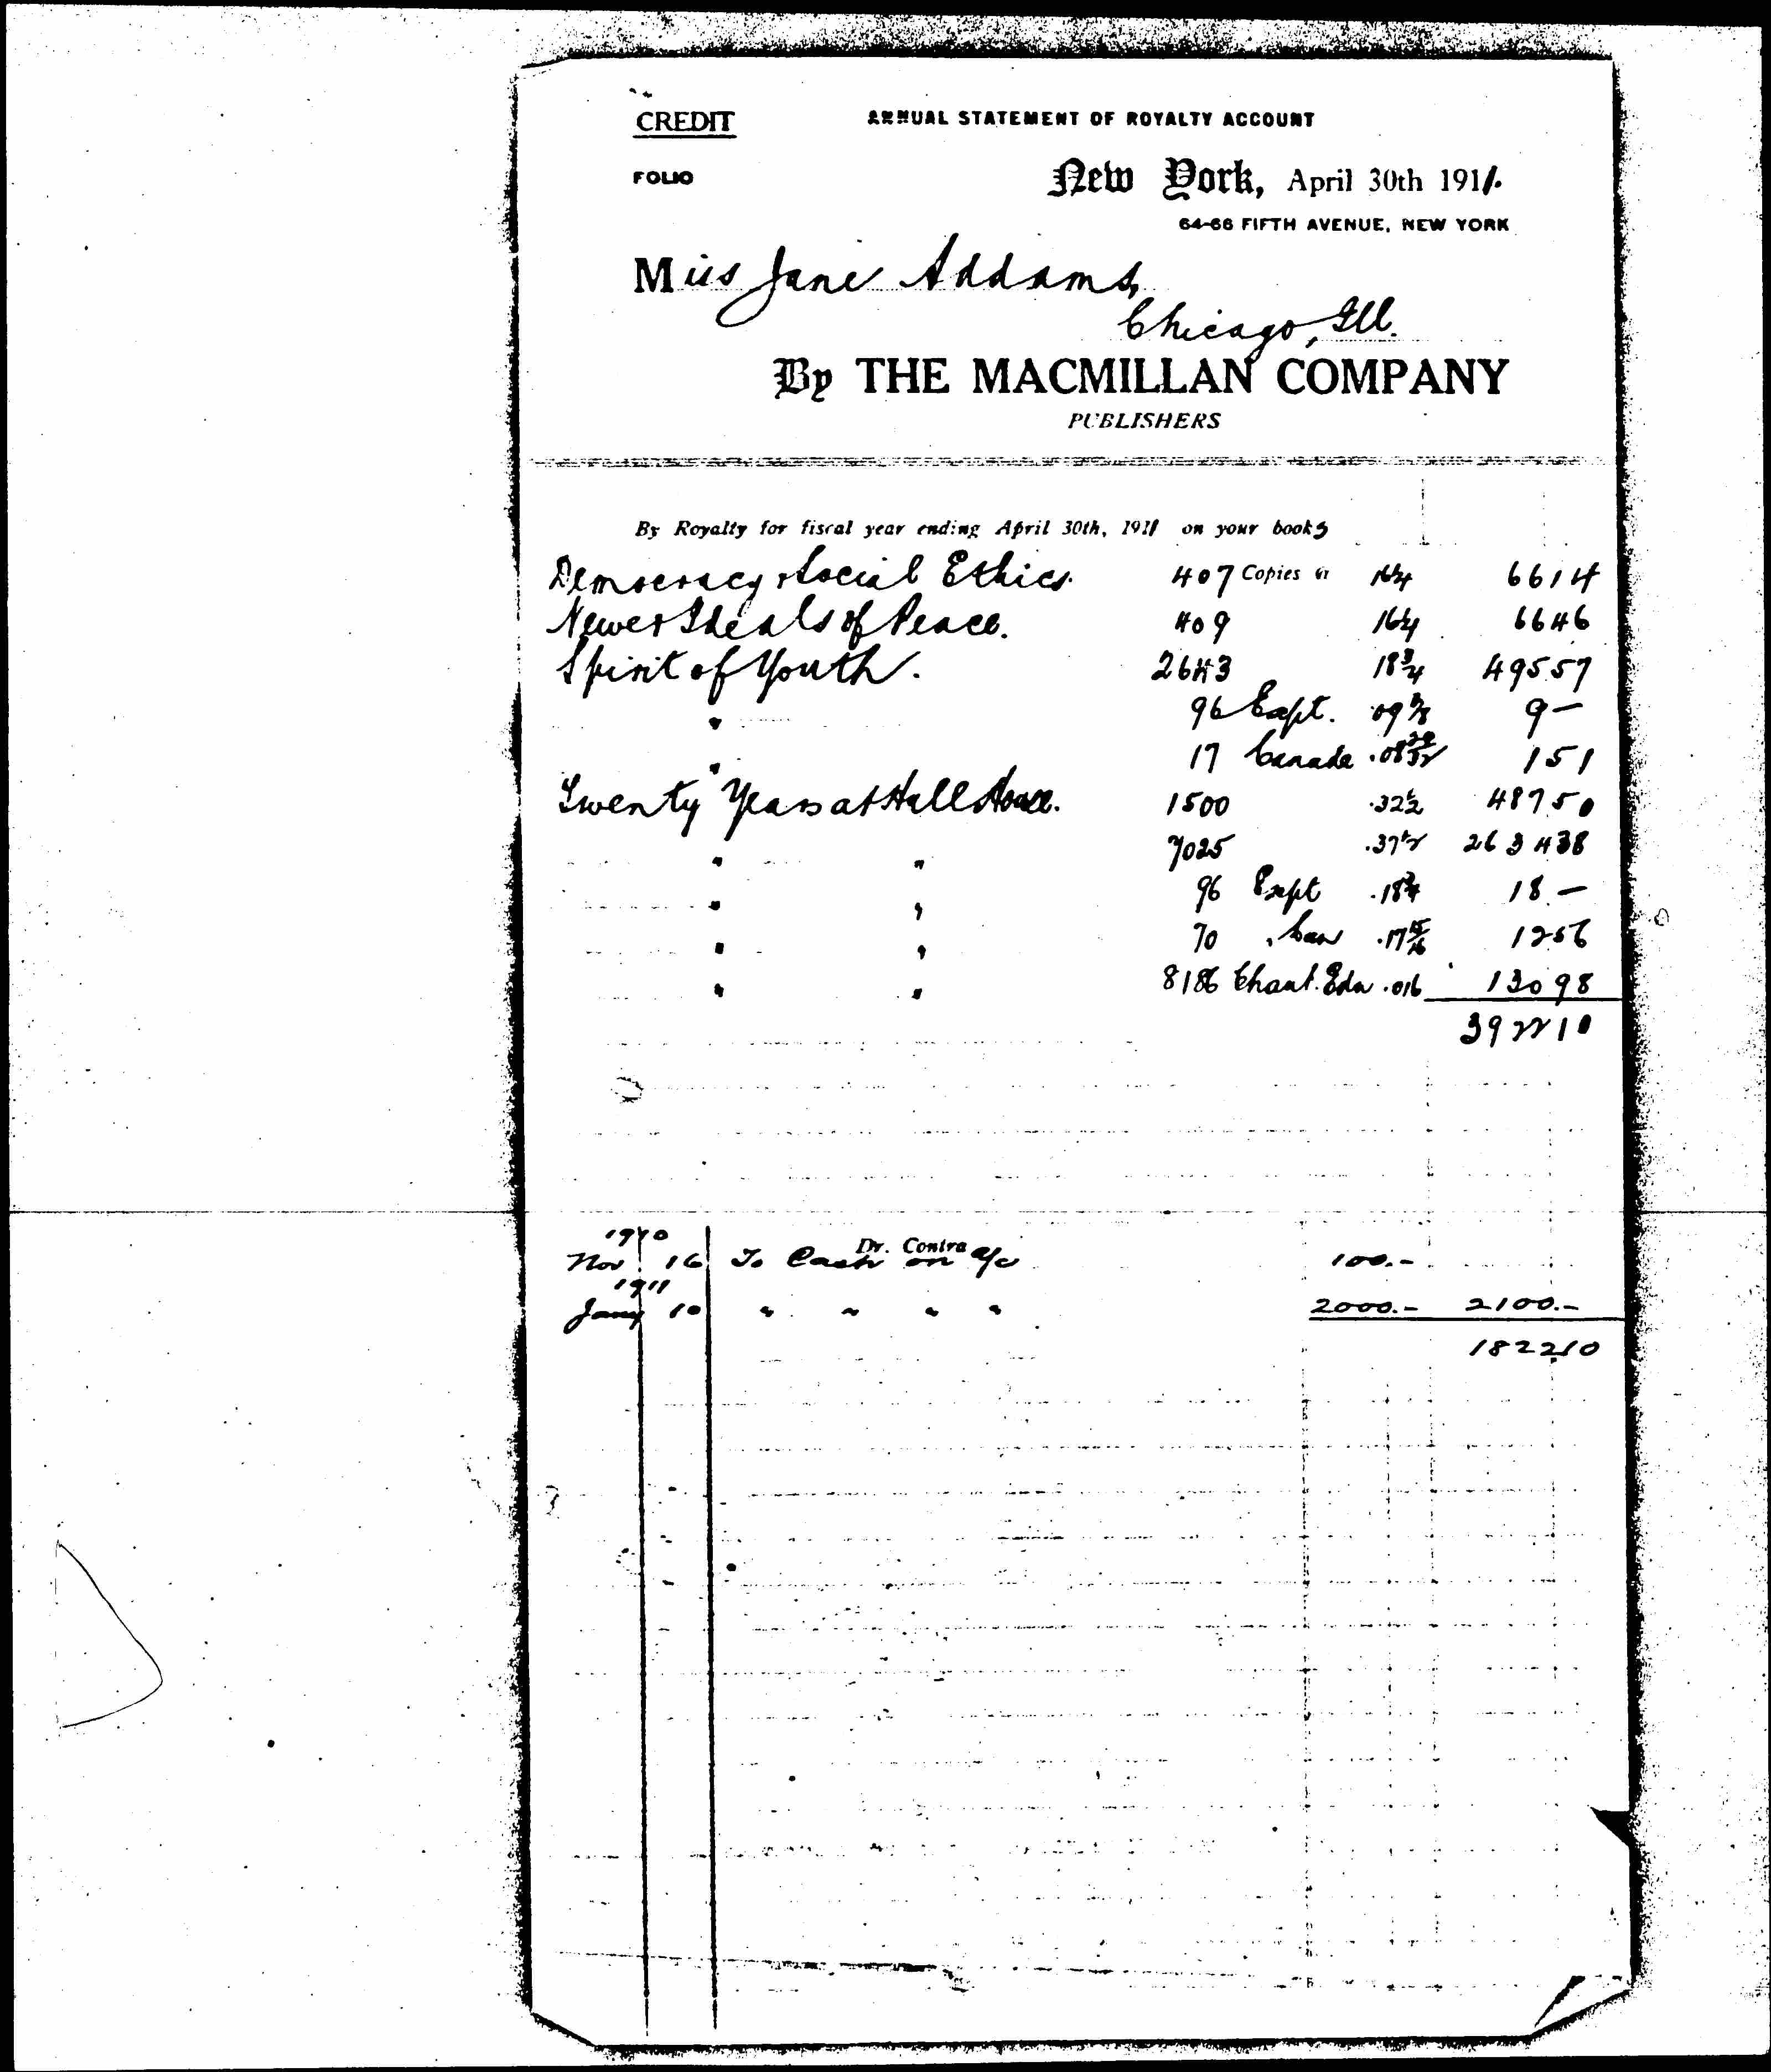 CREDIT
ANNUAL STATEMENT OF ROYALTY ACCOUNT
FOLIO
New York, April 30th 1911.
64-66 FIFTH AVENUE, NEW YORK
Miss Jane Addams,
Chicago, Ill.
By THE MACMILLAN COMPANY
PUBLISHERS
By Royalty for fiscal year ending April 30th, 1911 on your books
Democracy & Social Ethics. 407 Copies @ 16¼ 66 14
Newer Ideals of Peace. 409 16¼ 66 46
Spirit of Youth. 2643 18¾ 495 57
" 96 Expt. .09⅜ 9 —
" 17 Canada .08 29/32 1 51
Twenty Years at Hull House. 1500 .32½ 487 50
" " 7025 .37½ 2634 38
" " 96 Expt .18¾ 18 —
" " 70 " Can .17 15/16 12 56
" " 8186 Chaut. Edn .016 130 98
3922 10
Dr. Contra
1910
Nov 16 To Cash on a/c 100.—
1911
Jany 10 " " " " 2000.— 2100.—
1822 10